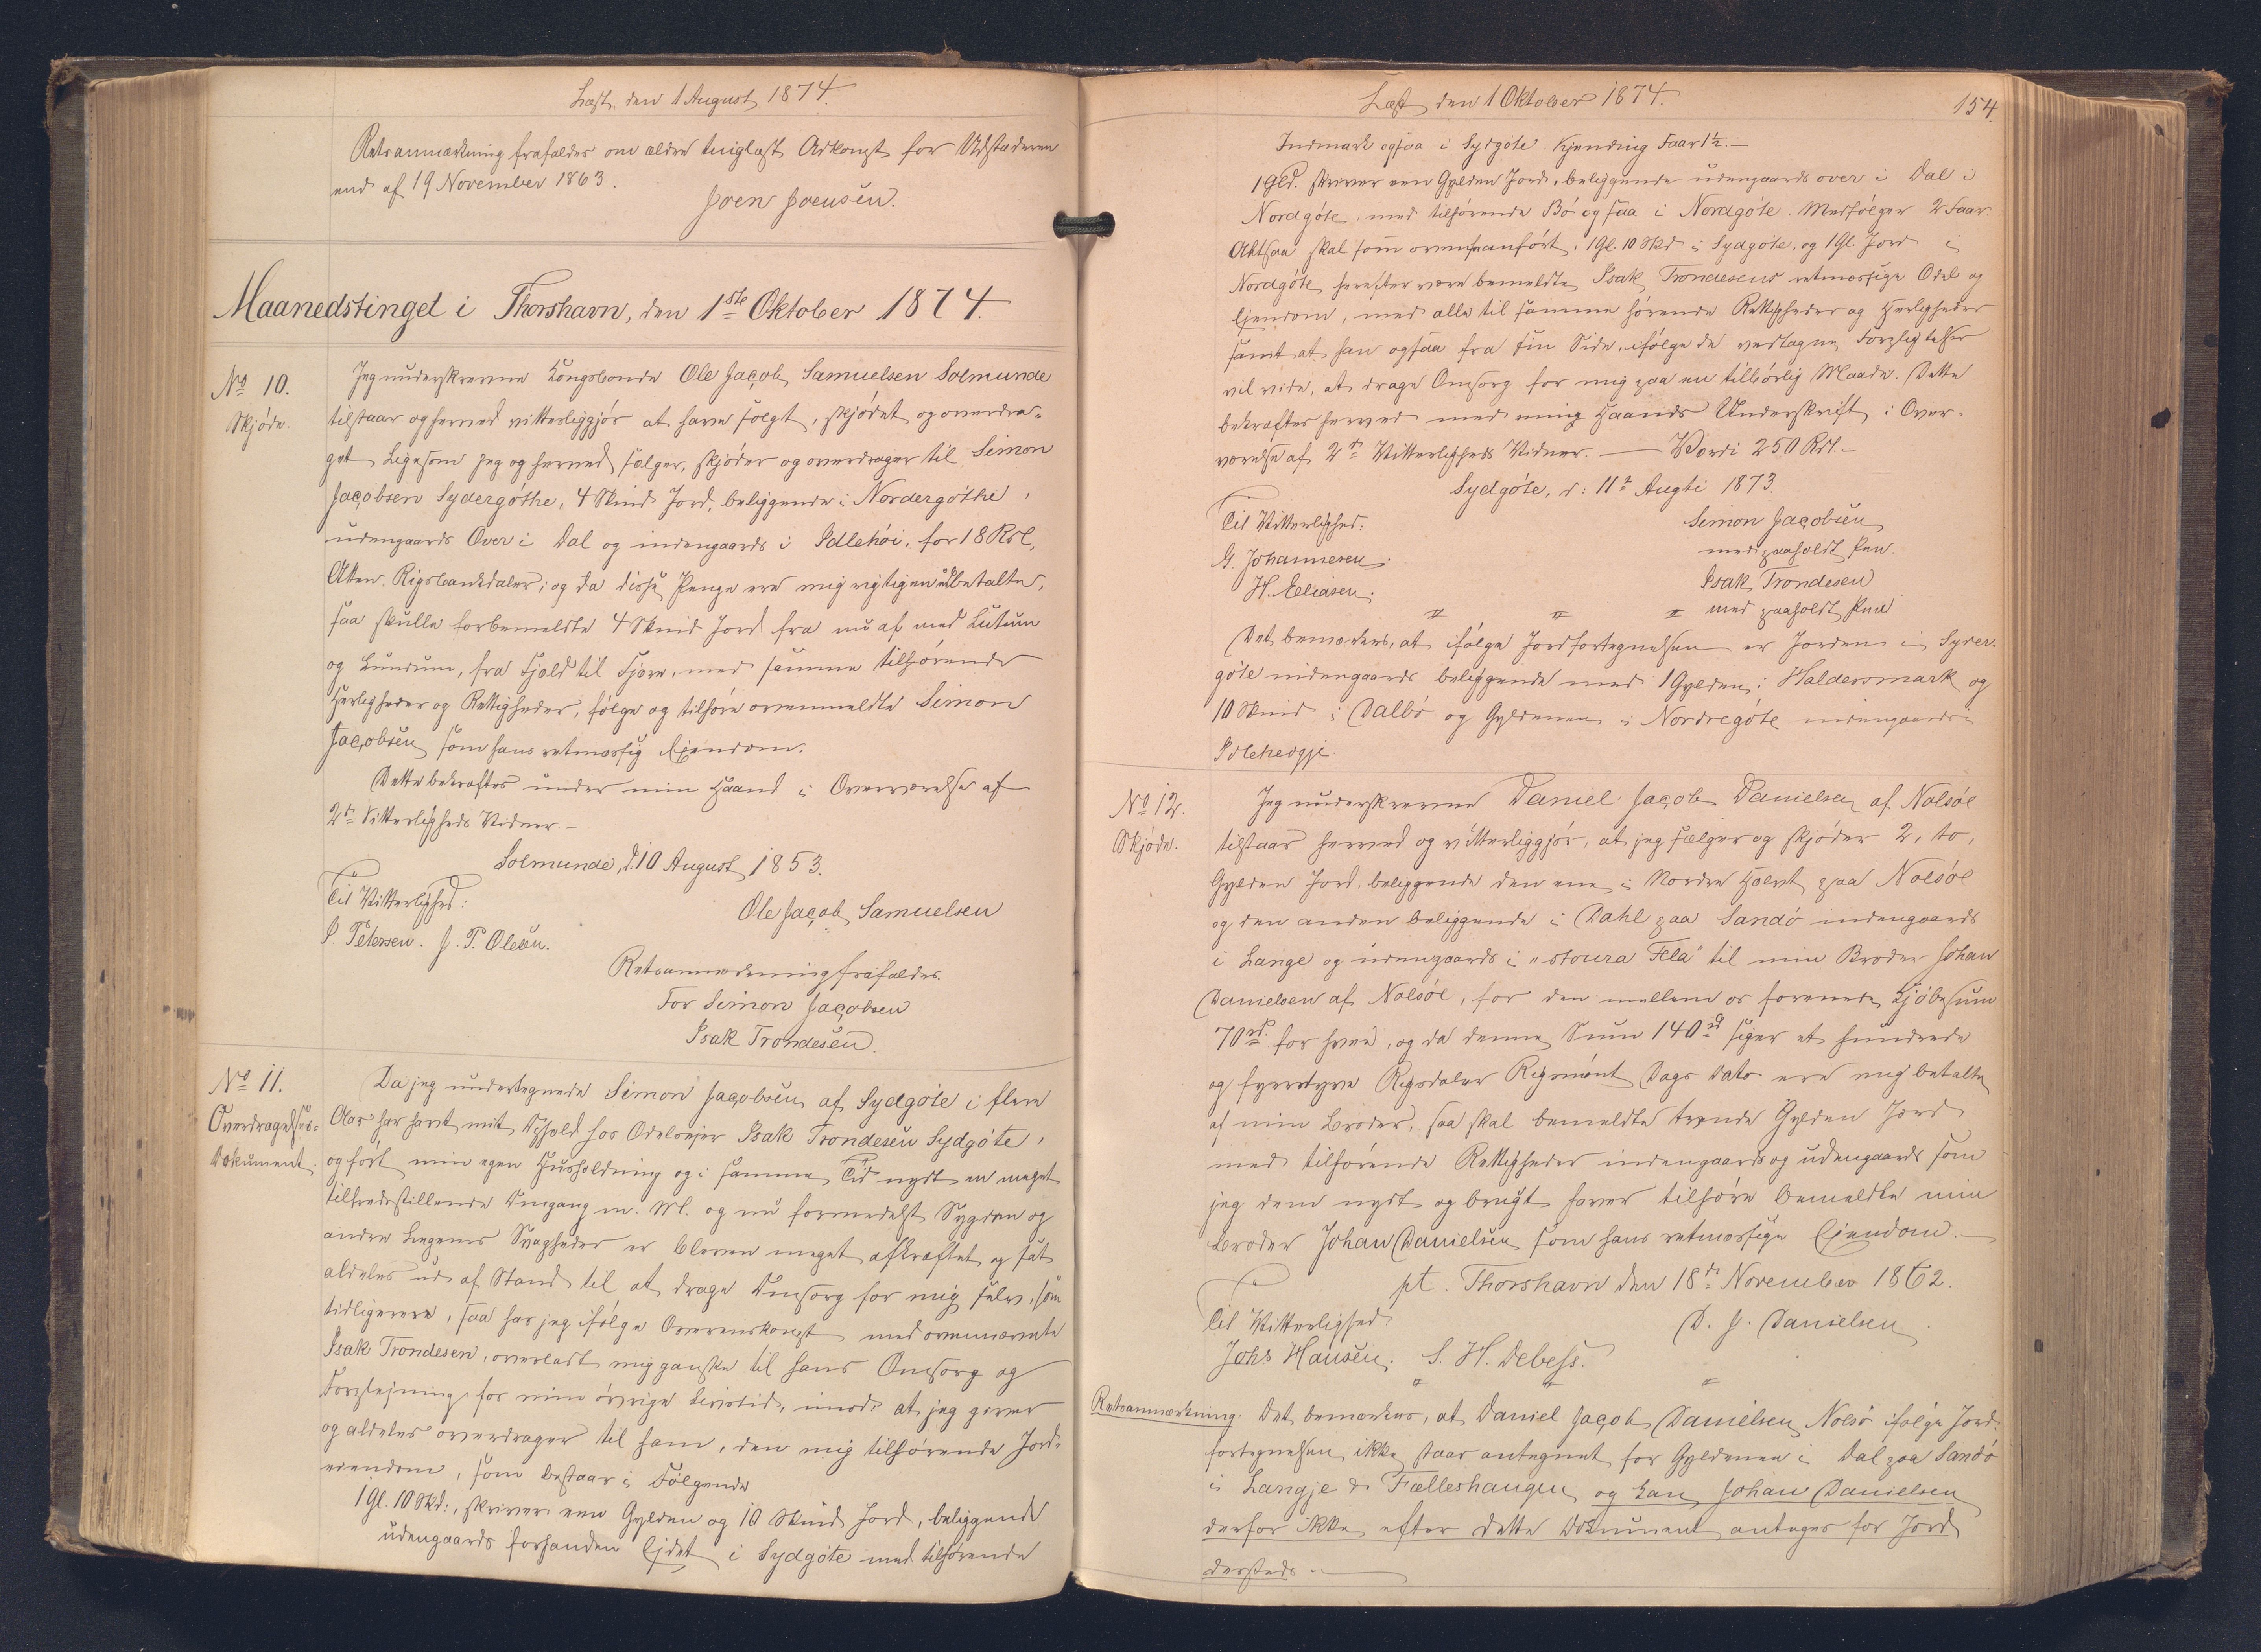 Læst den 1 August 1874.
Retsanmærkning frafaldes om ældre tinglæst Adkomst for Udstederen
end af 19 November 1863.
Joen Joensen.
Maanedstinget i Thorshavn, den 1ste Oktober 1874.
No 10.
Skjøde.
Jeg underskrevne Kongsbonde Ole Jacob Samuelsen Solmunde
tilstaar og herved vitterliggjør at have solgt, skjødet og overdra-
get Ligesom jeg og herved sælger, skjøder og overdrager til Simon
Jacobsen Sydergøthe, 4 Skind Jord, beliggende i Nordergøthe,
udengaards Over i Dal og indengaards i Idlehøi, for 18 Rdl,
Atten Rigsbankdaler; og da disse Penge ere mig rigtigen udbetalte,
saa skulle forbemeldte 4 Skind Jord fra nu af med Lutum
og Lundum, fra Fjeld til Fjære, med samme tilhørende
Herligheder og Rettigheder, følge og tilhøre ovenmeldte Simon
Jacobsen som hans retmæssig Ejendom.
Dette bekræftes under min Haand i Overværelse af
2de Vitterligheds Vidner.
Solmunde, d. 10 August 1853.
Til Vitterlighed:
Ole Jacob Samuelsen
P. Petersen. J. P. Olesen.
Retsanmærkning frafaldes.
For Simon Jacobsen
Isak Trondesen.
No 11.
Overdragelses-
Dokument.
Da jeg undertegnede Simon Jacobsen af Sydgøte i flere
Aar har havt mit Ophold hos Odelsejer Isak Trondesen Sydgøte,
og ført min egen Husholdning og i samme Tid nydt en meget
tilfredsstillende Omgang m. M. og nu formedelst Sygdom og
andre Legems Svagheder er bleven meget afkræftet og sat
aldeles ud af Stand til at drage Omsorg for mig selv, som
tidligerere, saa har jeg ifølge Overenskomst med ovennævnte
Isak Trondesen, overladt mig ganske til hans Omsorg og
Forplejning for min øvrige Livstid, imod at jeg giver
og aldeles overdrager til ham, den mig tilhørende Jord-
eiendom, som bestaar i Følgende
1 Gl. 10 Skd:, skriver een Gylden og 10 Skind Jord, beliggende
udengaards forhanden Ejdet i Sydgøte med tilhørende
Læst den 1 Oktober 1874.
154
Indmark ogsaa i Sydgøte. Kjending Faar 1½.
1 Gld. skriver een Gylden Jord, beliggende udengaards over i Dal i
Nordgøte, med tilhørende Bø ogsaa i Nordgøte. Medfølger 2 Faar.
Altsaa skal som ovenanført, 1 Gl. 10 Skd i Sydgøte, og 1 Gl. Jord i
Nordgøte herefter være bemeldte Isak Trondesens retmæssige Odel og
Ejendom, med alle til samme hørende Rettigheder og Herligheder
samt at han ogsaa fra sin Side, ifølge de vedtagne Forpligtelser
vil vide, at drage Omsorg for mig paa en tilbørlig Maade. Dette
bekræftes herved med min Haands Underskrift i Over-
værelse af 2de Vitterligheds Vidner. — Værdi 250 Rdl. —
Sydgøte, d: 11te Augti 1873.
Til Vitterlighed:
Simon Jacobsen
med paaholdt Pen.
G. Johannesen.
Isak Trondesen
H. Eeliasen.
med paaholdt Pen
Det bemærkes, at ifølge Jordfortegnelsen er Jorden i Syder-
gøte indengaards beliggende med 1 Gylden i Haldersmark og
10 Skind i Dalbø og Gyldenen i Nordregøte indengaards
Idleheygje.
No 12.
Skjøde.
Jeg underskrevne Daniel Jacob Danielsen af Nolsøe
tilstaar herved og vitterliggjør, at jeg sælger og skjøder 2, to,
Gylden Jord, beliggende den ene i Nordre Helvt paa Nolsøe
og den anden beliggende i Dahl paa Sandø indengaards
i Lange og udengaards i "stoura Fela" til min Broder Johan
Danielsen af Nolsøe, for den mellem os forenede Kjøbesum
70rd for hver, og da denne Sum 140rd siger et hundrede
og fyrretyve Rigsdaler Rigsmønt Dags Dato ere mig betalte
af min Broder, saa skal bemeldte tvende Gylden Jord
med tilhørende Rettigheder indengaards og udengaards som
jeg dem nydt og brugt haver tilhøre bemeldte min
Broder Johan Danielsen som hans retmæssige Ejendom.
pt. Thorshavn den 18de November 1862.
Til Vitterlighed
D. J. Danielsen
Johs Hansen. S. H. Debess.
Retsanmærkning: Det bemærkes, at Daniel Jacob Danielsen Nolsø ifølge Jord-
fortegnelsen ikke staar antegnet for Gyldenen i Dal paa Sandø
i Langje & Fælleshaugen og kan Johan Danielsen
derfor ikke efter dette Dokument antages for Jord
dersteds.